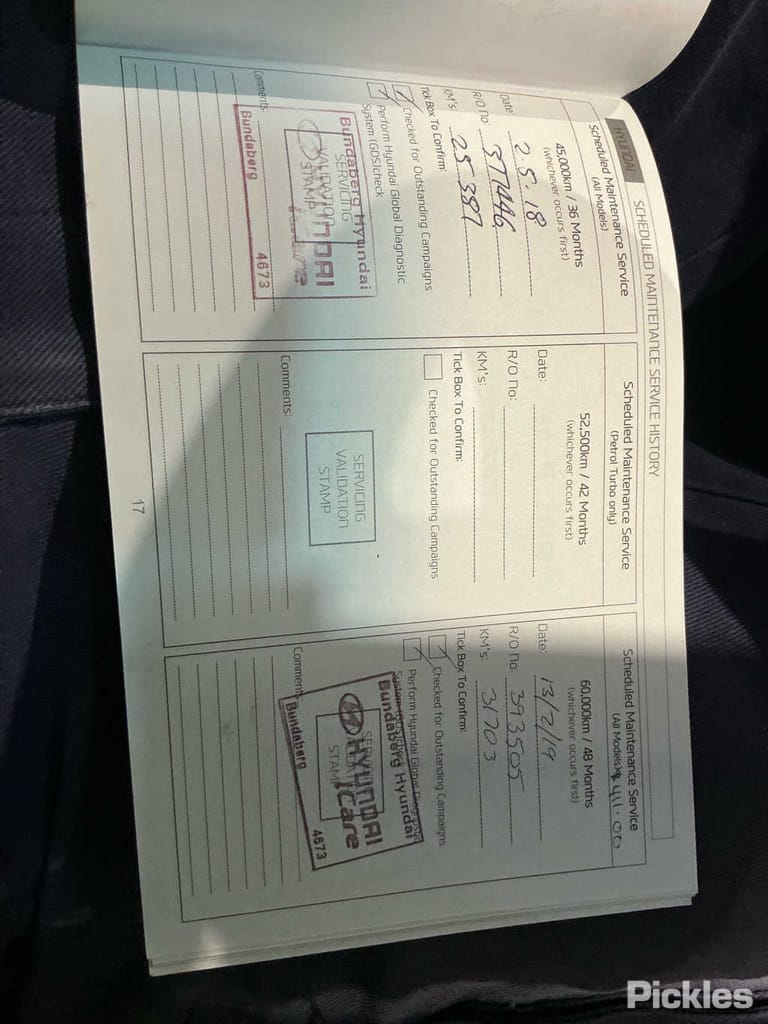 HYUNDAI
SCHEDULED MAINTENANCE SERVICE HISTORY
Scheduled Maintenance Service
(All Models)
45,000km / 36 Months
(whichever occurs first)
Date: 2.5.18
R/O No: 377446
KM's: 25 387
Tick Box To Confirm:
Checked for Outstanding Campaigns
Perform Hyundai Global Diagnostic
System (GDS)check
Bundaberg Hyundai
SERVICING
VALIDATION
STAMP
HYUNDAI
iCare
Bundaberg 4673
Comments:
Scheduled Maintenance Service
(Petrol Turbo only)
52,500km / 42 Months
(whichever occurs first)
Date:
R/O No:
KM's:
Tick Box To Confirm:
Checked for Outstanding Campaigns
SERVICING
VALIDATION
STAMP
Comments:
17
Scheduled Maintenance Service
(All Models) $411.00
60,000km / 48 Months
(whichever occurs first)
Date: 13/2/19.
R/O No: 393505
KM's: 31703
Tick Box To Confirm:
Checked for Outstanding Campaigns
Perform Hyundai Global Diagnostic
System (GDS)check
Bundaberg Hyundai
SERVICING
VALIDATION
STAMP
HYUNDAI
iCare
Bundaberg 4673
Comments:
Pickles